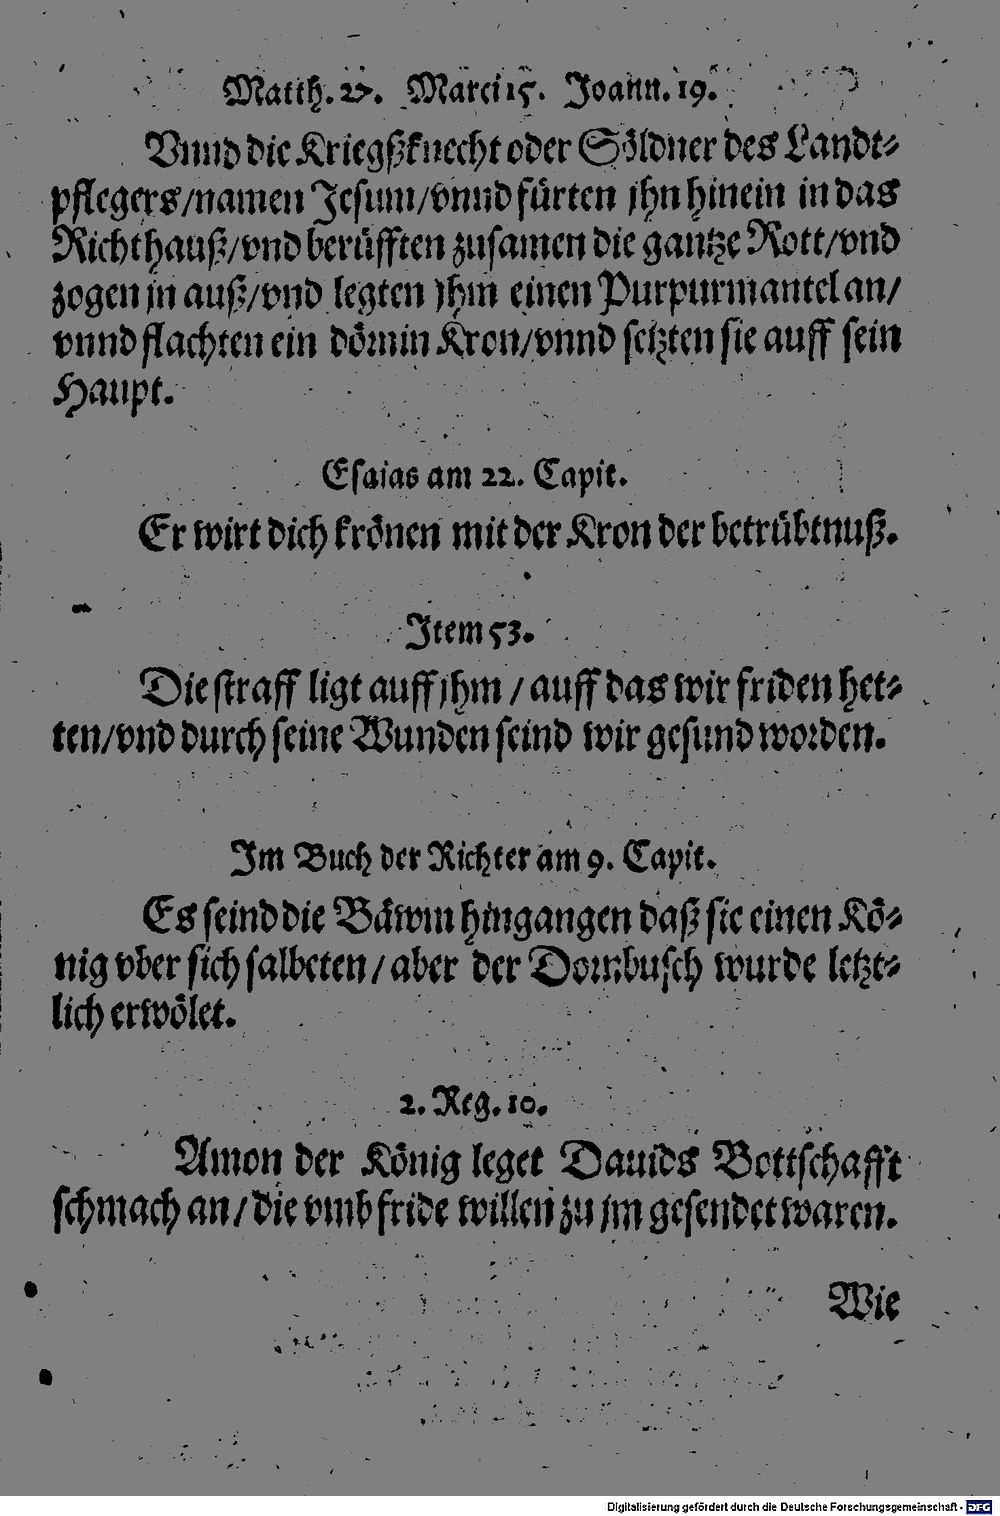 Matth. 27. Marci 15. Joann. 19.
Vnnd die Kriegßknecht oder Söldner des Landt⸗
pflegers/namen Jesum/vnnd fürten jhn hinein in das
Richthauß/vnd berüfften zusamen die gantze Rott/vnd
zogen jn auß/vnd legten jhm einen Purpurmantel an/
vnnd flachten ein dörnin Kron/vnnd setzten sie auff sein
Haupt.
Esaias am 22. Capit.
Er wirt dich krönen mit der Kron der betrübtnuß.
Item 53.
Die straff ligt auff jhm / auff das wir friden het⸗
ten/vnd durch seine Wunden seind wir gesund worden.
Im Buch der Richter am 9. Capit.
Es seind die Bäwm hingangen daß sie einen Kö⸗
nig vber sich salbeten/aber der Dornbusch wurde letzt⸗
lich erwölet.
2. Reg. 10.
Amon der König leget Dauids Bottschafft
schmach an/die vmb fride willen zu jm gesendet waren.
Wie
Digitalisierung gefördert durch die Deutsche Forschungsgemeinschaft - DFG